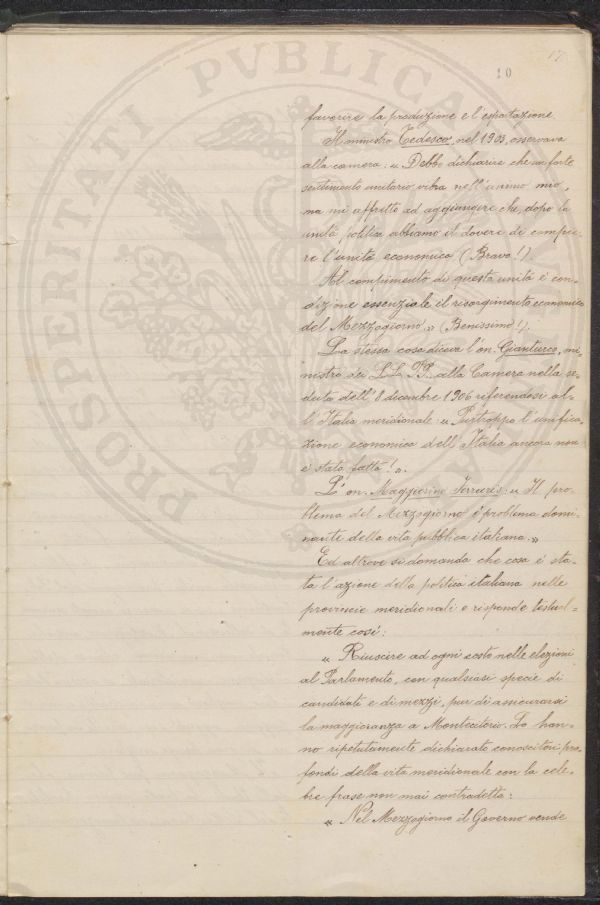 17
10
PROSPERITATI PVBLICAE
favorire la produzione e l'esportazione.
Il ministro Tedesco, nel 1903, osservava
alla camera: « Debbo dichiarire che un forte
sentimento unitario vibra nell'animo mio,
ma mi affretto ad aggiungere che, dopo la
unità politica abbiamo il dovere di compie-
re l'unità economica (Bravo!).
Al compimento di questa unità è con-
dizione essenziale il risorgimento economico
del Mezzogiorno » (Benissimo!).
La stessa cosa diceva l'on. Gianturco, mi-
nistro dei LL. PP. alla Camera nella se-
duta dell'8 dicembre 1906 riferendosi al-
l'Italia meridionale: « Purtroppo l'unifica-
zione economica dell'Italia ancora non
è stata fatta! ».
L'on. Maggiorino Ferraris: « Il pro-
blema del Mezzogiorno è problema domi-
nante della vita pubblica italiana. »
Ed altrove si domanda che cosa è sta-
ta l'azione della politica italiana nelle
provincie meridionali e risponde testual=
mente così:
« Riuscire ad ogni costo nelle elezioni
al Parlamento, con qualsiasi specie di
candidati e di mezzi, pur di assicurarsi
la maggioranza a Montecitorio. Lo han-
no ripetutamente dichiarato conoscitori pro-
fondi della vita meridionale con la cele-
bre frase non mai contradetta:
« Nel Mezzogiorno il Governo vende